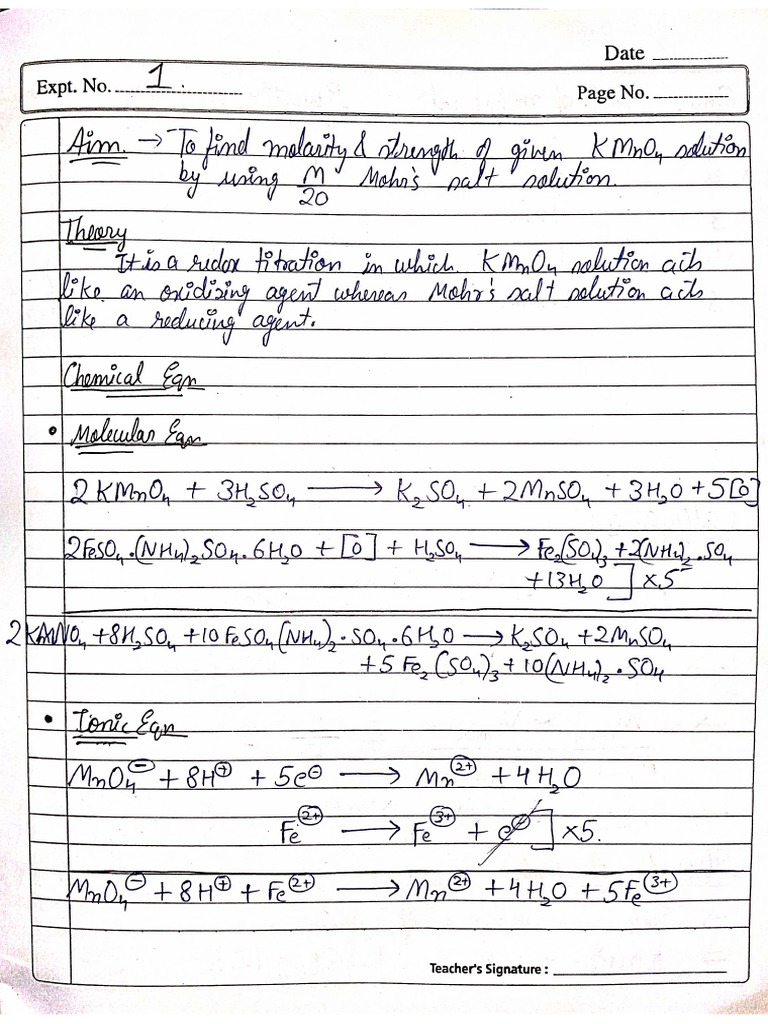 Date
Expt. No. 1.
Page No.
Aim. → To find molarity & strength of given KMnO₄ solution
by using M/20 Mohr's salt solution.
Theory
It is a redox titration in which KMnO₄ solution acts
like an oxidising agent whereas Mohr's salt solution acts
like a reducing agent.
Chemical Eqn
• Molecular Eqn
2KMnO₄ + 3H₂SO₄ ⟶ K₂SO₄ + 2MnSO₄ + 3H₂O + 5[O]
2FeSO₄·(NH₄)₂SO₄·6H₂O + [O] + H₂SO₄ ⟶ Fe₂(SO₄)₃ + 2(NH₄)₂·SO₄
+ 13H₂O ] × 5
2KMnO₄ + 8H₂SO₄ + 10FeSO₄(NH₄)₂·SO₄·6H₂O ⟶ K₂SO₄ + 2MnSO₄
+ 5Fe₂(SO₄)₃ + 10(NH₄)₂·SO₄
• Ionic Eqn
MnO₄⁻ + 8H⁺ + 5e⁻ ⟶ Mn²⁺ + 4H₂O
Fe²⁺ ⟶ Fe³⁺ + e⁻ ] × 5.
MnO₄⁻ + 8H⁺ + Fe²⁺ ⟶ Mn²⁺ + 4H₂O + 5Fe³⁺
Teacher's Signature :